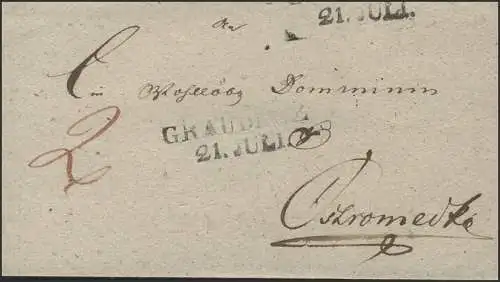 21. JULI.
An
Ein Wohllöbl Dominium
2
GRAUDENZ
21. JULI.
Ostromedko